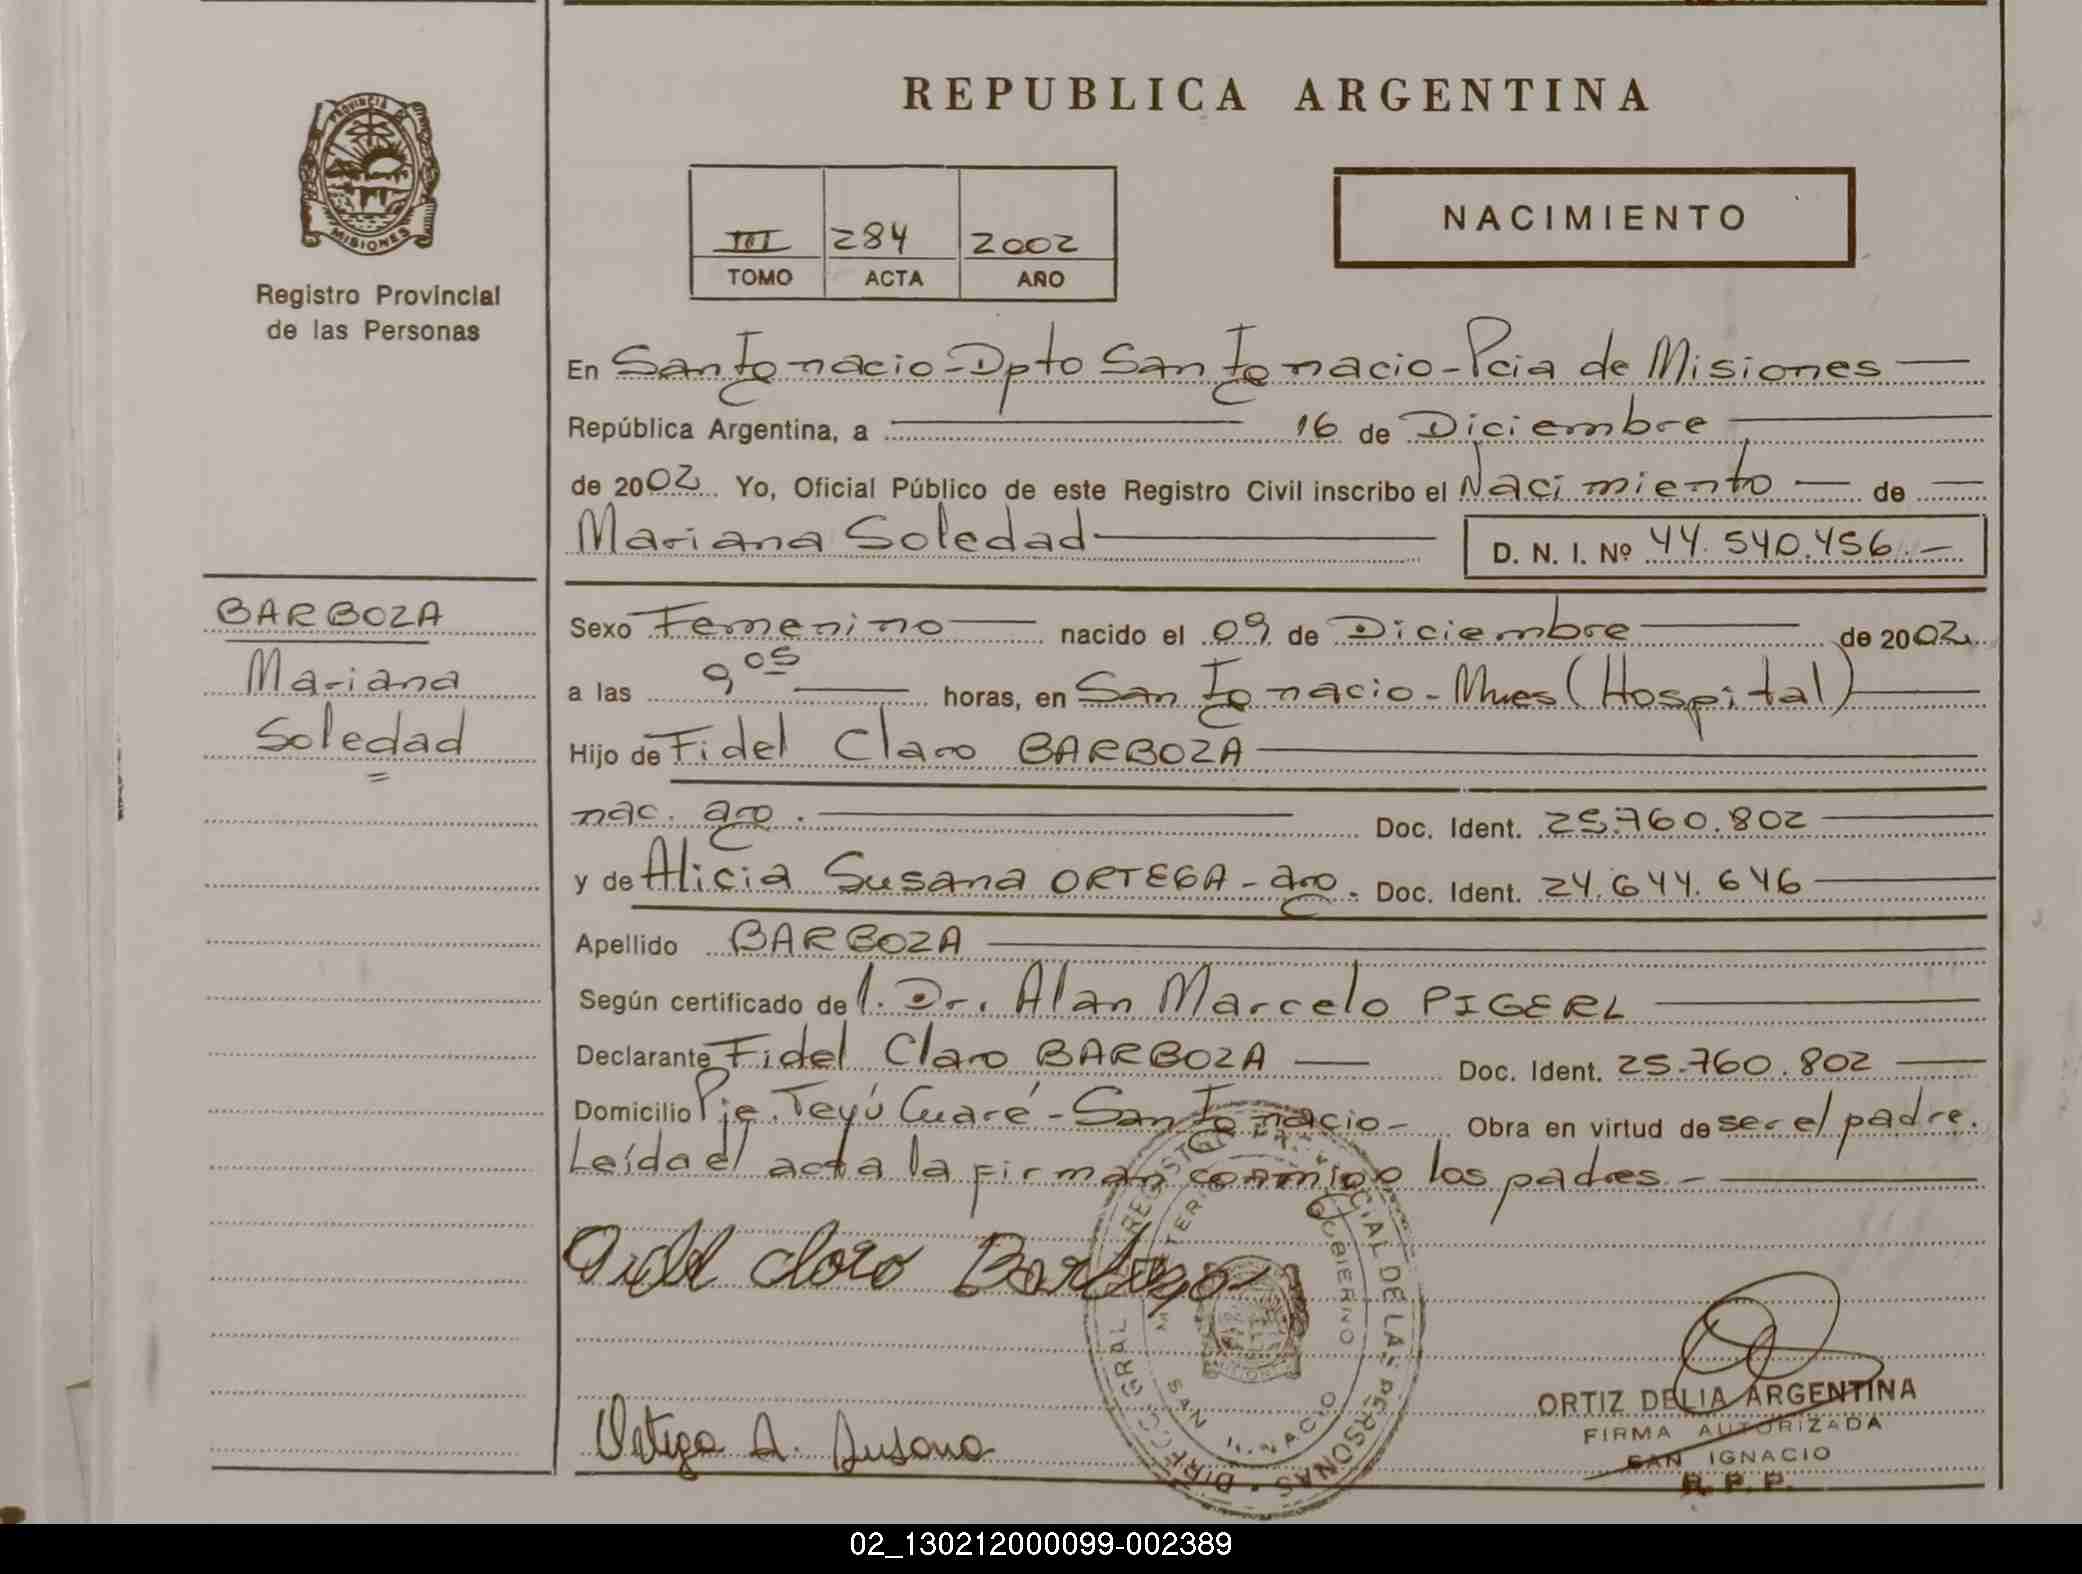 REPUBLICA ARGENTINA
PROVINCIA DE
MISIONES
Registro Provincial
de las Personas
III 284 2002
TOMO ACTA AÑO
NACIMIENTO
En San Ignacio - Dpto San Ignacio - Pcia de Misiones
República Argentina, a 16 de Diciembre
de 2002 Yo, Oficial Público de este Registro Civil inscribo el Nacimiento de
Mariana Soledad D. N. I. Nº 44.540.456.-
BARBOZA
Mariana
Soledad
Sexo Femenino nacido el 09 de Diciembre de 2002
a las 9 05 horas, en San Ignacio - Mnes (Hospital)
Hijo de Fidel Claro BARBOZA
nac. arg. Doc. Ident. 25.760.802
y de Alicia Susana ORTEGA - arg. Doc. Ident. 24.644.646
Apellido BARBOZA
Según certificado de l. Dr. Alan Marcelo PIGERL
Declarante Fidel Claro BARBOZA Doc. Ident. 25.760.802
Domicilio Pje. Teyú Cuaré - San Ignacio - Obra en virtud de ser el padre.
Leída el acta la firman conmigo los padres.-
Fidel claro Barboza
Ortega A. Susana
DIRECC. GRAL REGISTRO PROVINCIAL DE LAS PERSONAS
MINISTERIO GOBIERNO
SAN IGNACIO
ORTIZ DELIA ARGENTINA
FIRMA AUTORIZADA
SAN IGNACIO
R. P. P.
02_130212000099-002389